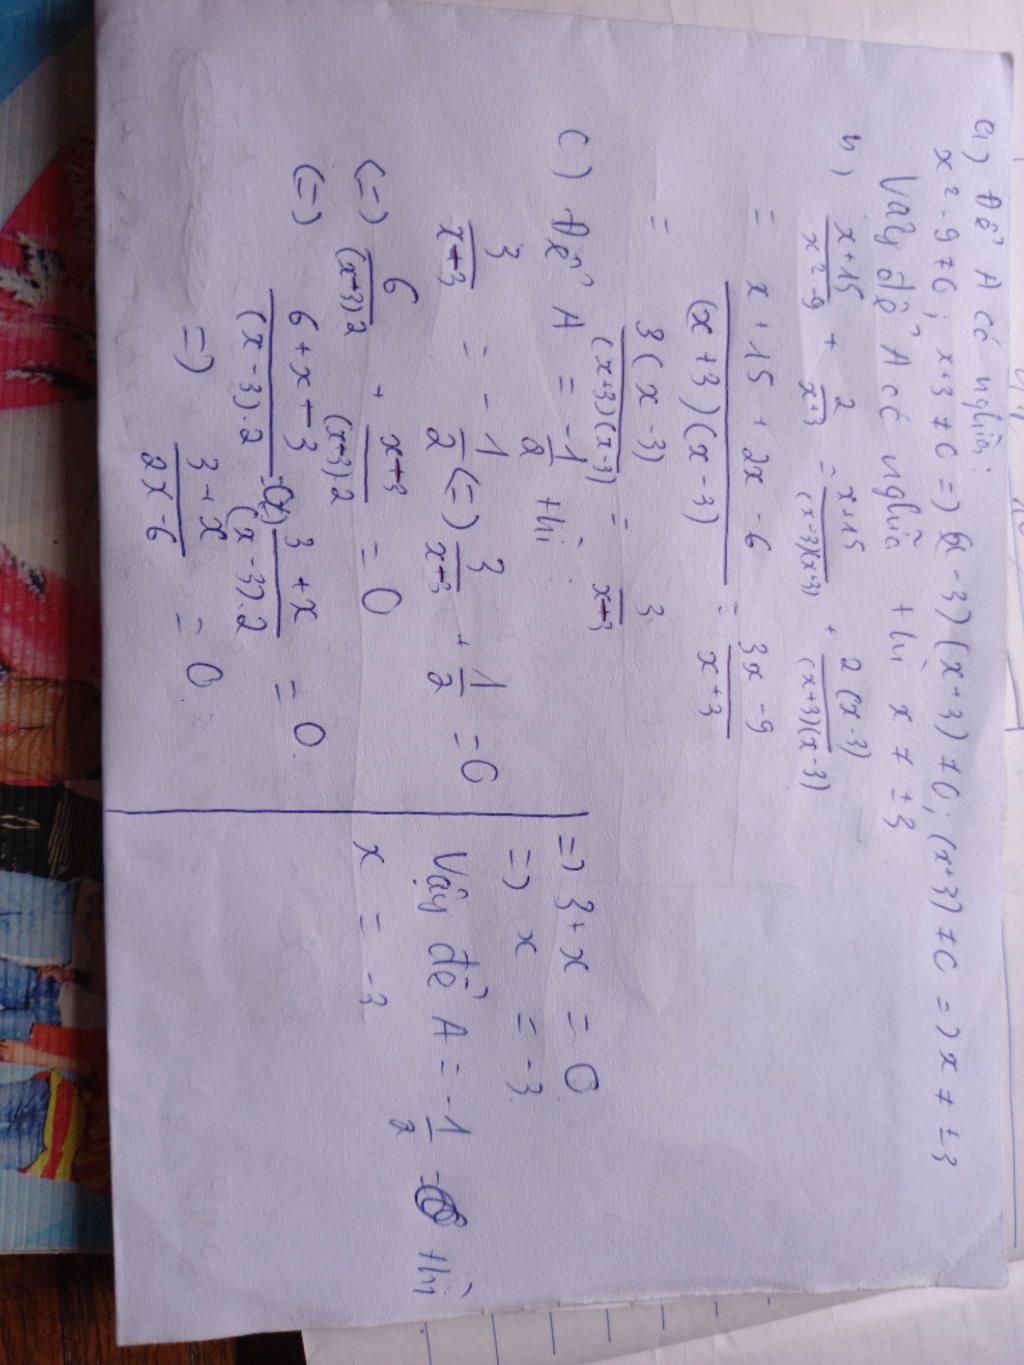 a) Để A có nghĩa:
x² - 9 ≠ 0; x+3 ≠ 0 => (x-3)(x+3) ≠ 0; (x+3) ≠ 0 => x ≠ ±3
Vậy để A có nghĩa thì x ≠ ±3
b) (x+15)/(x²-9) + 2/(x+3) = (x+15)/((x-3)(x+3)) + 2(x-3)/((x+3)(x-3))
= (x+15+2x-6)/((x+3)(x-3)) = (3x-9)/(x+3)
= 3(x-3)/((x+3)(x-3)) = 3/(x+3)
c) Để A = -1/2 thì:
3/(x+3) = -1/2 (=) 3/(x+3) + 1/2 = 0
(=) 6/((x+3)2) + (x+3)/((x+3)2) = 0
(=) (6+x-3)/((x-3).2) (3+x)/((x-3).2) = 0.
=> (3+x)/(2x-6) = 0.
=> 3+x = 0
=> x = -3
Vậy để A = -1/2 thì
x = -3